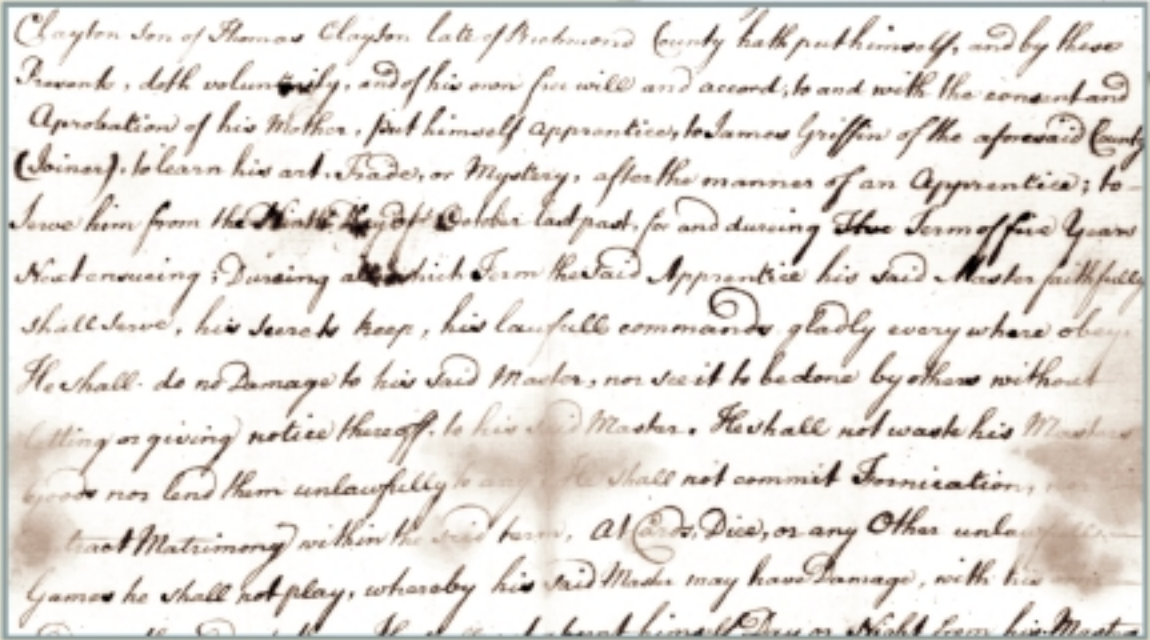 Clayton son of Thomas Clayton late of Richmond County hath put himself, and by these
Presents, doth voluntarily, and of his own free will and accord, to and with the consent and
Aprobation of his Mother, put himself apprentice, to James Griffin of the aforesaid County
(Joiner), to learn his art, Trade, or Mystery, after the manner of an Apprentice; to
Serve him from the Ninth Day of October last past, for and dureing The Term of five Years
Next ensueing; Dureing all which Term the said Apprentice his said Master faithfully
shall serve, his secrets keep, his lawfull commands gladly every where obey
He shall do no Damage to his said Master, nor see it to be done by others without
letting or giving notice thereoff, to his said Master. He shall not waste his Masters
Goods nor lend them unlawfully to any He shall not commit Fornication,
Matrimony within the said term. At Cards, Dice, or any Other
Games he shall not play, whereby his said Master may have Damage, with his
himself Day or Night from his